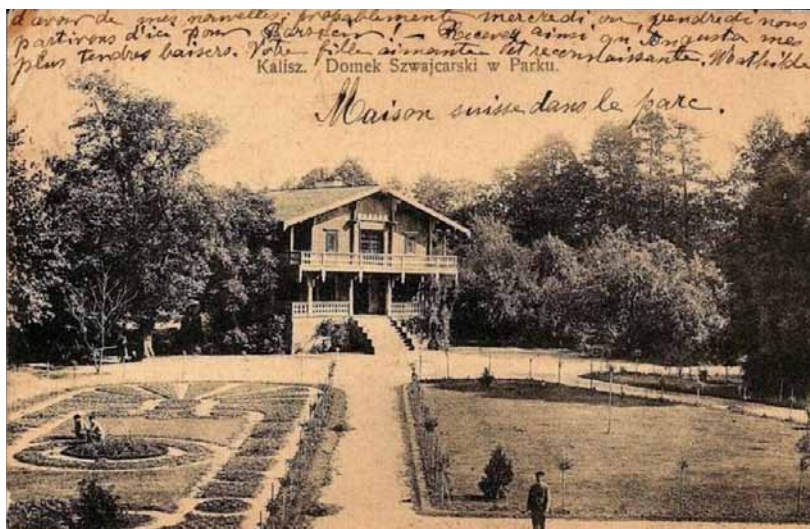 d'avoir de mes nouvelles; propablement mercredi ou vendredi nous
partirons d'ici pour ! – Recevez ainsi qu'Augusta mes
plus tendres baisers. Votre fille aimante et reconnaissante,
Kalisz. Domek Szwajcarski w Parku.
Maison suisse dans le parc.